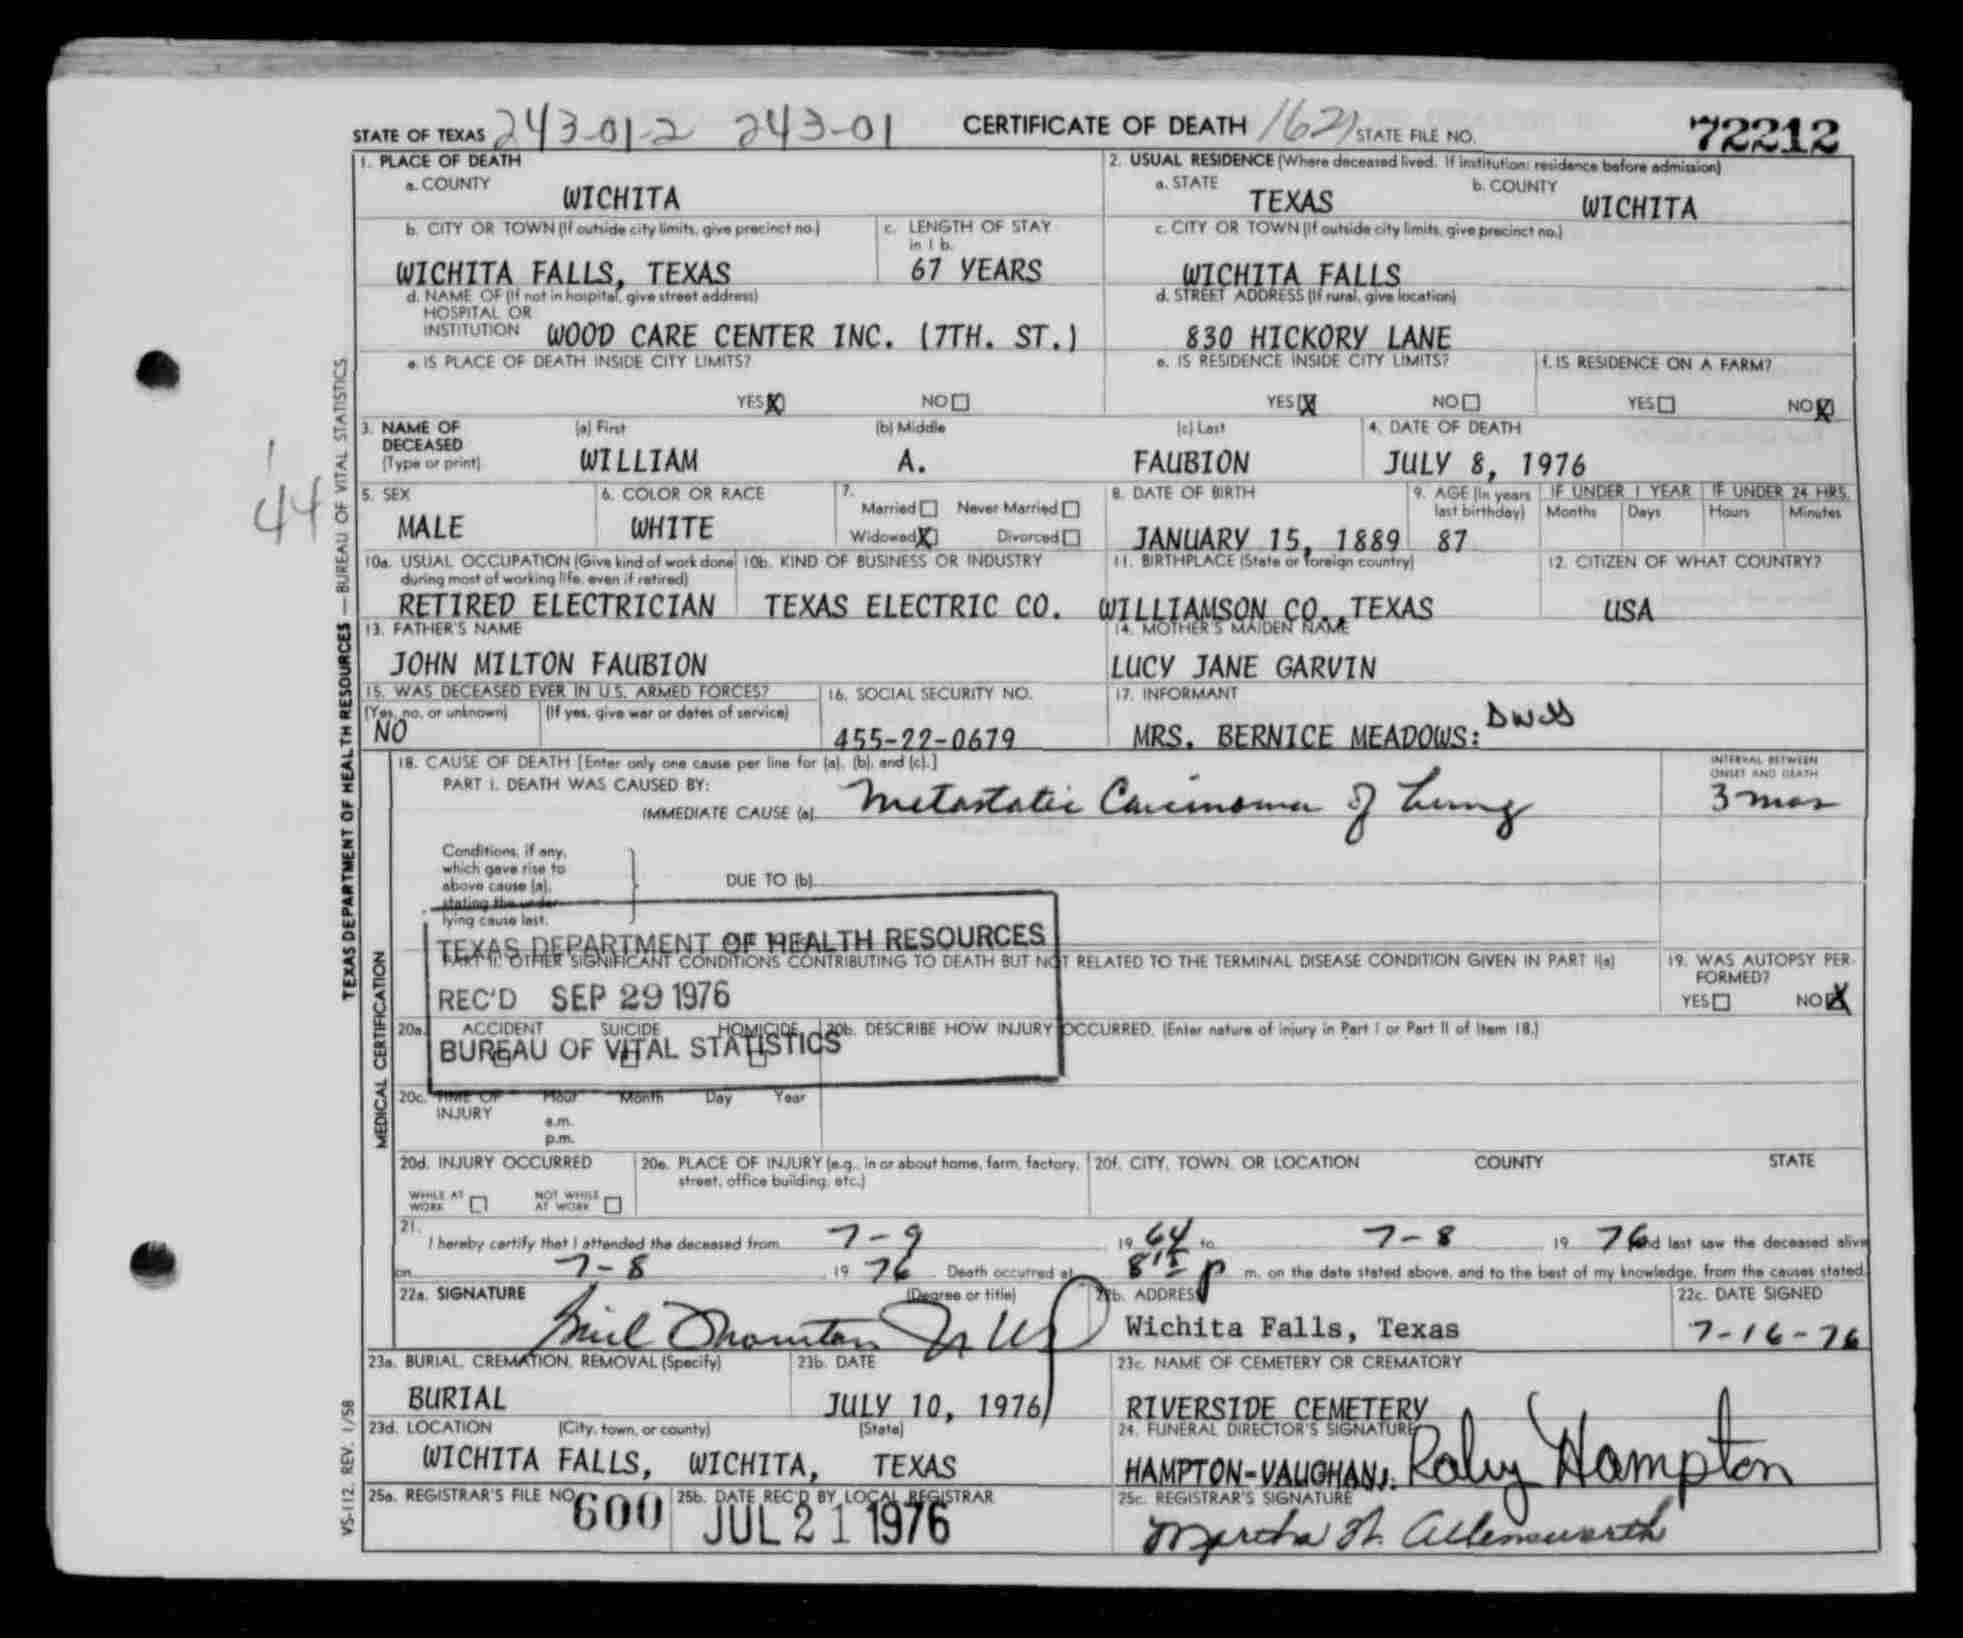 STATE OF TEXAS 243-01-2 243-01 CERTIFICATE OF DEATH 1621 STATE FILE NO. 72212
1. PLACE OF DEATH
a. COUNTY
WICHITA
2. USUAL RESIDENCE (Where deceased lived. If institution: residence before admission)
a. STATE
TEXAS
b. COUNTY
WICHITA
b. CITY OR TOWN (If outside city limits, give precinct no.)
WICHITA FALLS, TEXAS
c. LENGTH OF STAY
in 1 b.
67 YEARS
c. CITY OR TOWN (If outside city limits, give precinct no.)
WICHITA FALLS
d. NAME OF (If not in hospital, give street address)
HOSPITAL OR
INSTITUTION WOOD CARE CENTER INC. (7TH. ST.)
d. STREET ADDRESS (If rural, give location)
830 HICKORY LANE
e. IS PLACE OF DEATH INSIDE CITY LIMITS?
YES X NO
e. IS RESIDENCE INSIDE CITY LIMITS?
YES X NO
f. IS RESIDENCE ON A FARM?
YES NO X
3. NAME OF
DECEASED
(Type or print)
(a) First
WILLIAM
(b) Middle
A.
(c) Last
FAUBION
4. DATE OF DEATH
JULY 8, 1976
5. SEX
MALE
6. COLOR OR RACE
WHITE
7.
Married Never Married
Widowed X Divorced
8. DATE OF BIRTH
JANUARY 15, 1889
9. AGE (In years
last birthday)
87
IF UNDER 1 YEAR
Months Days
IF UNDER 24 HRS.
Hours Minutes
10a. USUAL OCCUPATION (Give kind of work done
during most of working life, even if retired)
RETIRED ELECTRICIAN
10b. KIND OF BUSINESS OR INDUSTRY
TEXAS ELECTRIC CO.
11. BIRTHPLACE (State or foreign country)
WILLIAMSON CO., TEXAS
12. CITIZEN OF WHAT COUNTRY?
USA
13. FATHER'S NAME
JOHN MILTON FAUBION
14. MOTHER'S MAIDEN NAME
LUCY JANE GARVIN
15. WAS DECEASED EVER IN U.S. ARMED FORCES?
(Yes, no, or unknown) (If yes, give war or dates of service)
NO
16. SOCIAL SECURITY NO.
455-22-0679
17. INFORMANT
MRS. BERNICE MEADOWS:
18. CAUSE OF DEATH [Enter only one cause per line for (a), (b), and (c).]
PART I. DEATH WAS CAUSED BY:
IMMEDIATE CAUSE (a) Metastatic Carcinoma of Lung
INTERVAL BETWEEN
ONSET AND DEATH
3 mos
Conditions, if any,
which gave rise to
above cause (a),
stating the under-
lying cause last.
DUE TO (b)
TEXAS DEPARTMENT OF HEALTH RESOURCES
REC'D SEP 29 1976
BUREAU OF VITAL STATISTICS
PART II. OTHER SIGNIFICANT CONDITIONS CONTRIBUTING TO DEATH BUT NOT RELATED TO THE TERMINAL DISEASE CONDITION GIVEN IN PART I(a)
19. WAS AUTOPSY PER-
FORMED?
YES NO X
20a. ACCIDENT SUICIDE HOMICIDE
20b. DESCRIBE HOW INJURY OCCURRED. (Enter nature of injury in Part I or Part II of Item 18.)
20c. TIME OF Hour Month Day Year
INJURY
a.m.
p.m.
20d. INJURY OCCURRED
WHILE AT WORK
NOT WHILE AT WORK
20e. PLACE OF INJURY (e.g., in or about home, farm, factory,
street, office building, etc.)
20f. CITY, TOWN, OR LOCATION COUNTY STATE
21.
I hereby certify that I attended the deceased from 7-9 19 64 to 7-8 19 76 and last saw the deceased alive
on 7-8 19 76. Death occurred at 8:15 p m. on the date stated above, and to the best of my knowledge, from the causes stated.
22a. SIGNATURE (Degree or title)
22b. ADDRESS
Wichita Falls, Texas
22c. DATE SIGNED
7-16-76
23a. BURIAL, CREMATION, REMOVAL (Specify)
BURIAL
23b. DATE
JULY 10, 1976
23c. NAME OF CEMETERY OR CREMATORY
RIVERSIDE CEMETERY
23d. LOCATION (City, town, or county) (State)
WICHITA FALLS, WICHITA, TEXAS
24. FUNERAL DIRECTOR'S SIGNATURE
HAMPTON-VAUGHAN: Raby Hampton
25a. REGISTRAR'S FILE NO.
600
25b. DATE REC'D BY LOCAL REGISTRAR
JUL 21 1976
25c. REGISTRAR'S SIGNATURE
Martha H. Allensworth
TEXAS DEPARTMENT OF HEALTH RESOURCES — BUREAU OF VITAL STATISTICS
MEDICAL CERTIFICATION
VS-112, REV. 1/58
44